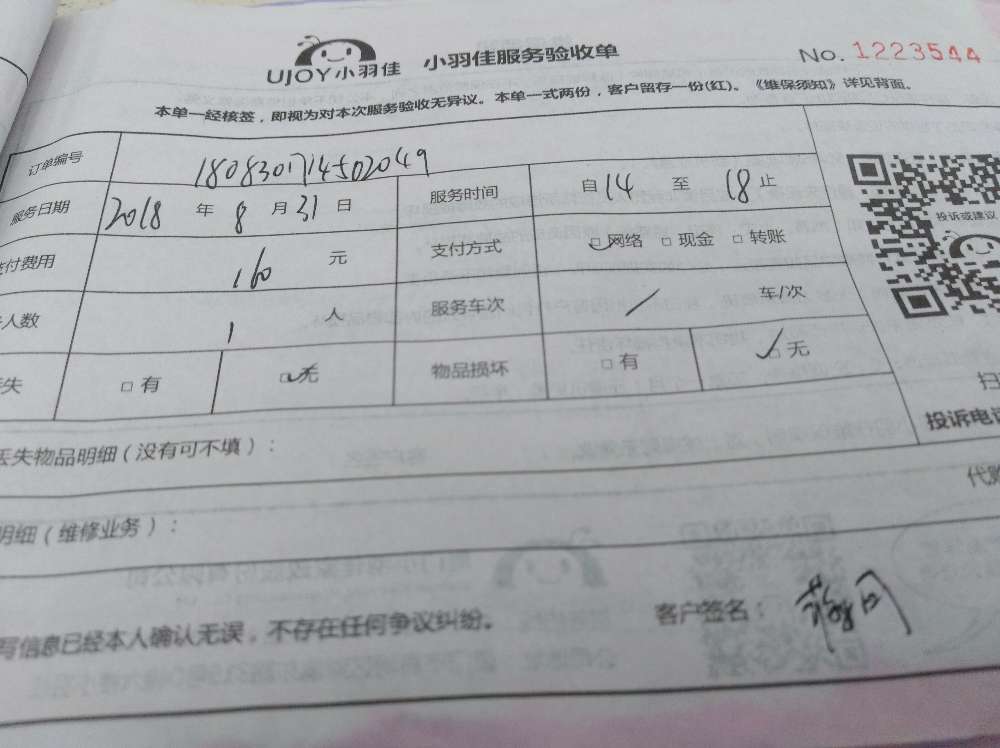 UJOY小羽佳 小羽佳服务验收单 No. 1223544
本单一经核签，即视为对本次服务验收无异议。本单一式两份，客户留存一份(红)。《维保须知》详见背面。
订单编号 1808301714502049
服务日期 2018 年 8 月 31 日 服务时间 自 14 至 18 止
付费用 160 元 支付方式 □网络 □现金 □转账
人数 1 人 服务车次 / 车/次
失 □有 □无 物品损坏 □有 □无
投诉或建议
扫
投诉电话
丢失物品明细（没有可不填）：
明细（维修业务）： 代购
写信息已经本人确认无误，不存在任何争议纠纷。 客户签名：